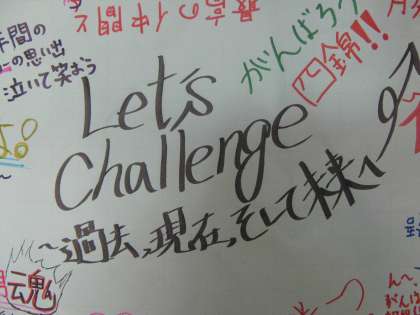 年間の
の思い出
泣いて笑おう
がんばろう
四錦!!
Let's
Challenge
~過去、現在、そして未来へ
魂